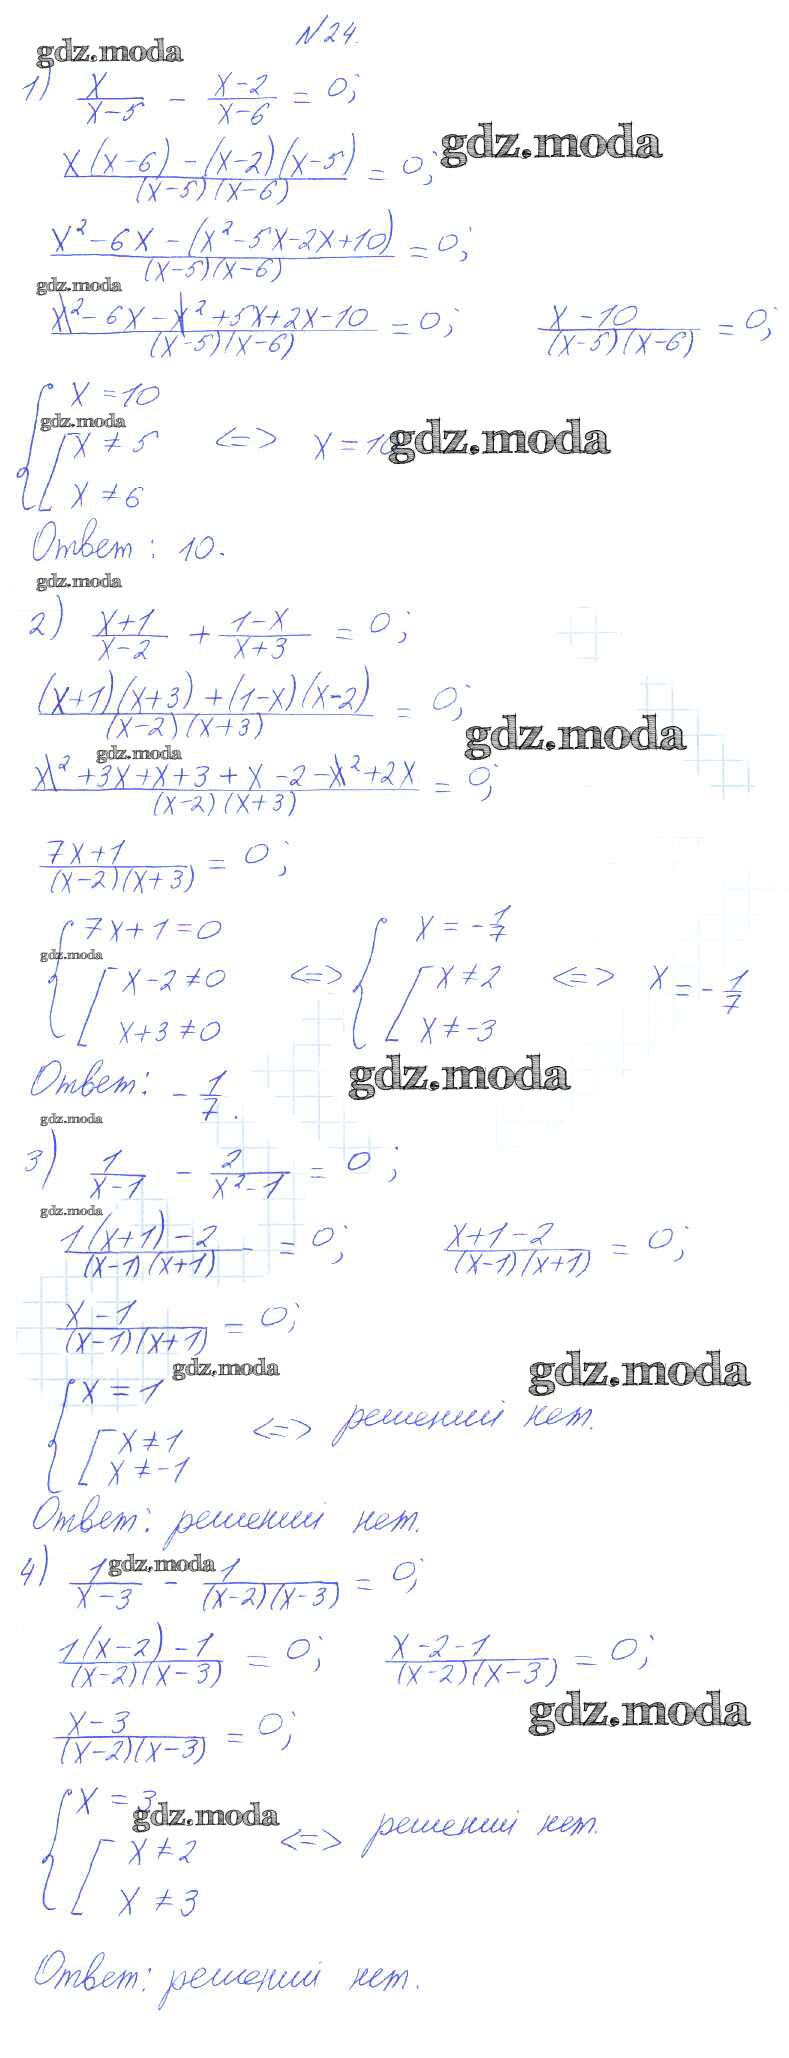 №24.
gdz.moda
1) x/(x-5) - (x-2)/(x-6) = 0;
gdz.moda
(x(x-6)-(x-2)(x-5))/((x-5)(x-6)) = 0;
(x²-6x-(x²-5x-2x+10))/((x-5)(x-6)) = 0;
gdz.moda
(x²-6x-x²+5x+2x-10)/((x-5)(x-6)) = 0; (x-10)/((x-5)(x-6)) = 0;
{ x=10
gdz.moda
[ x≠5 <=> x=10 gdz.moda
x≠6
Ответ: 10.
gdz.moda
2) (x+1)/(x-2) + (1-x)/(x+3) = 0;
((x+1)(x+3)+(1-x)(x-2))/((x-2)(x+3)) = 0;
gdz.moda
gdz.moda
(x²+3x+x+3+x-2-x²+2x)/((x-2)(x+3)) = 0;
(7x+1)/((x-2)(x+3)) = 0;
{ 7x+1=0 { x=-1/7
gdz.moda
[ x-2≠0 <=> [ x≠2 <=> x=-1/7
x+3≠0 x≠-3
Ответ: -1/7.
gdz.moda
gdz.moda
3) 1/(x-1) - 2/(x²-1) = 0;
gdz.moda
(1(x+1)-2)/((x-1)(x+1)) = 0; (x+1-2)/((x-1)(x+1)) = 0;
(x-1)/((x-1)(x+1)) = 0;
gdz.moda
gdz.moda
{ x=1
[ x≠1 <=> решений нет.
x≠-1
Ответ: решений нет.
gdz.moda
4) 1/(x-3) - 1/((x-2)(x-3)) = 0;
(1(x-2)-1)/((x-2)(x-3)) = 0; (x-2-1)/((x-2)(x-3)) = 0;
gdz.moda
(x-3)/((x-2)(x-3)) = 0;
{ x=3
gdz.moda
[ x≠2 <=> решений нет.
x≠3
Ответ: решений нет.